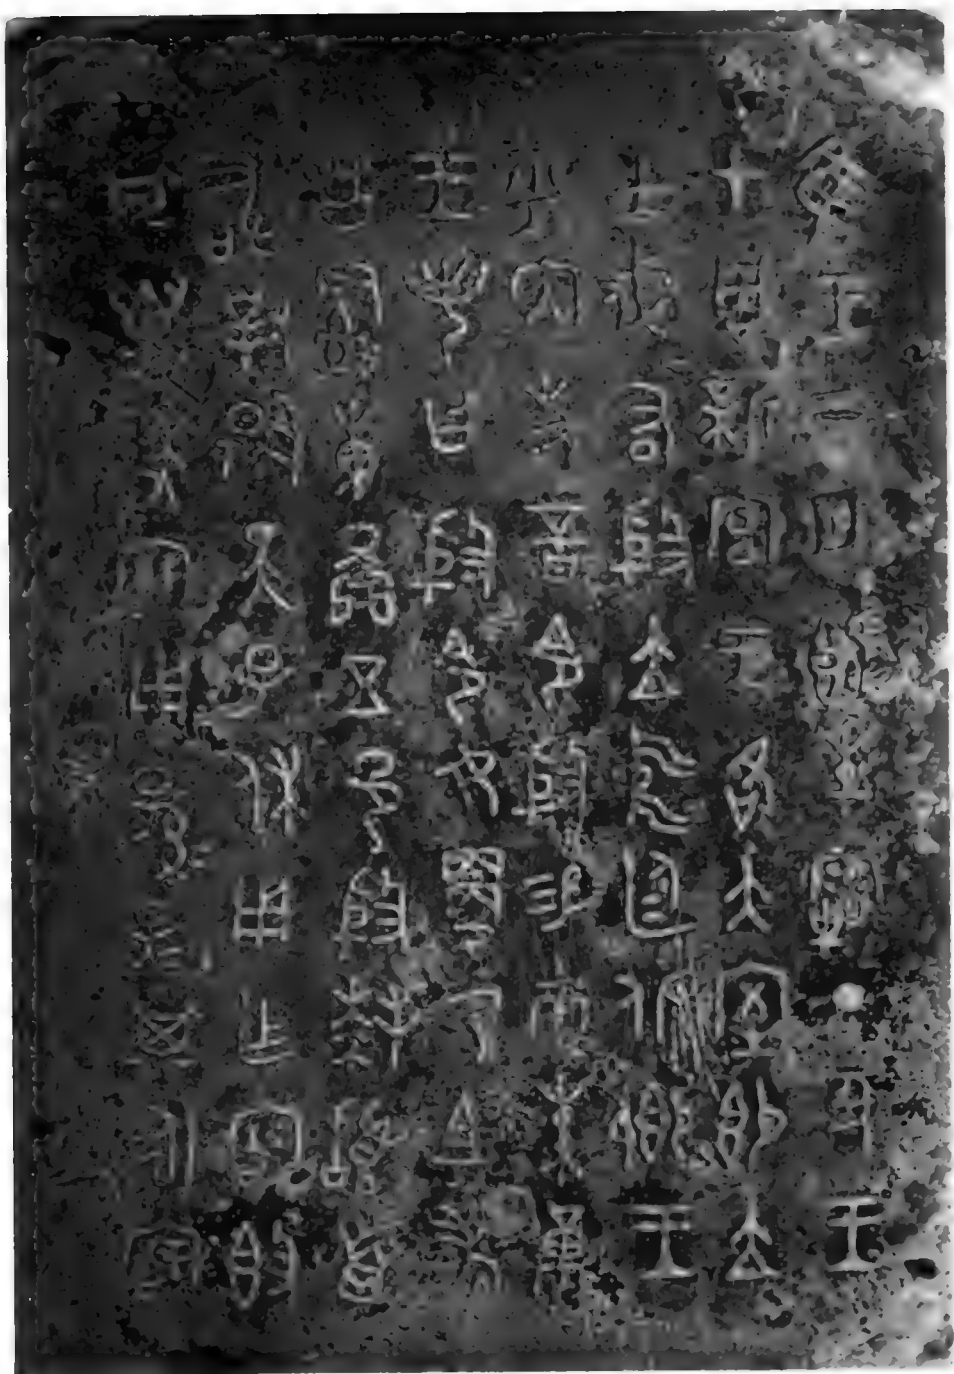 隹王二月既生霸丁丑王
才周新宮王各大室即立
士戍右殷立中廷北鄉王
乎內史音令殷易巿朱黃
王若曰殷令女更乃且考
友𤔲東啚五邑殷拜𩒨首
敢對揚天子休用乍寶𣪘
其萬年寶用孫孫子子其永寶